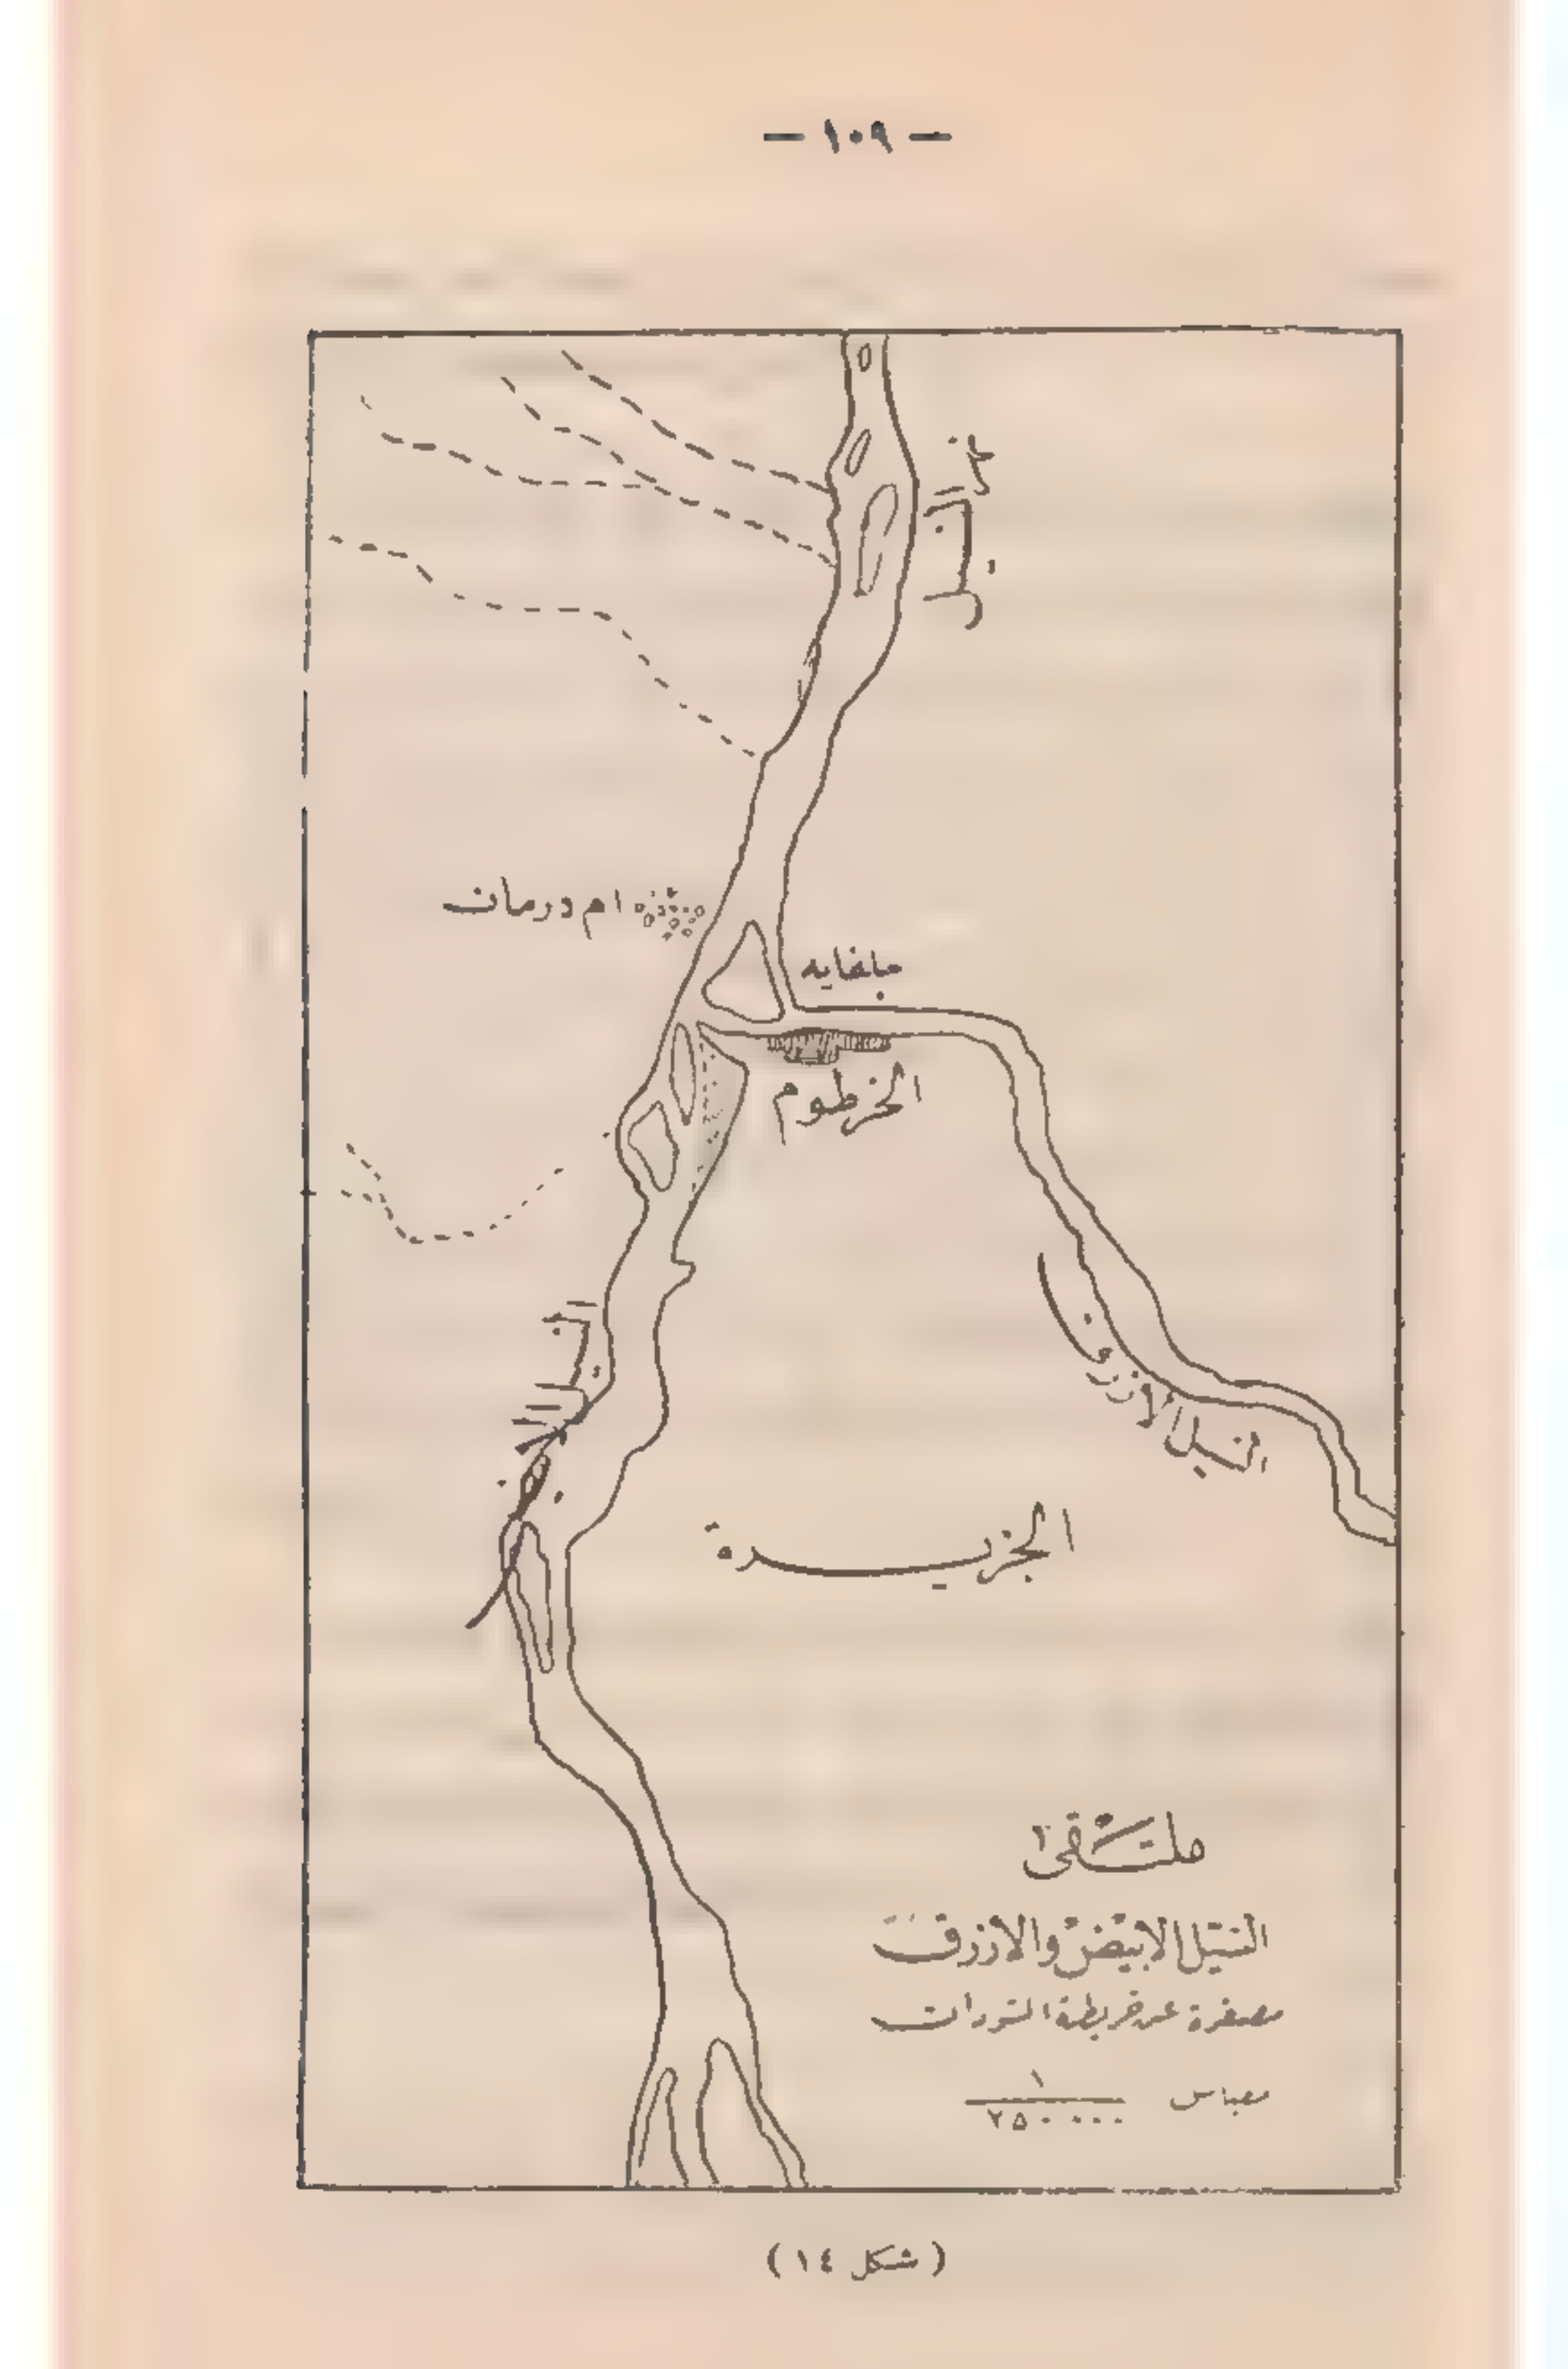 — ١٠٩ —
نهر النيل
ام درمان
حلفايه
الخرطوم
النيل الأبيض
النيل الازرق
الجزيرة
ملتقى
النيل الابيض والازرق
مصغرة عن خريطة السودان
مقياس ١/٢٥٠٠٠٠
( شكل ١٤ )